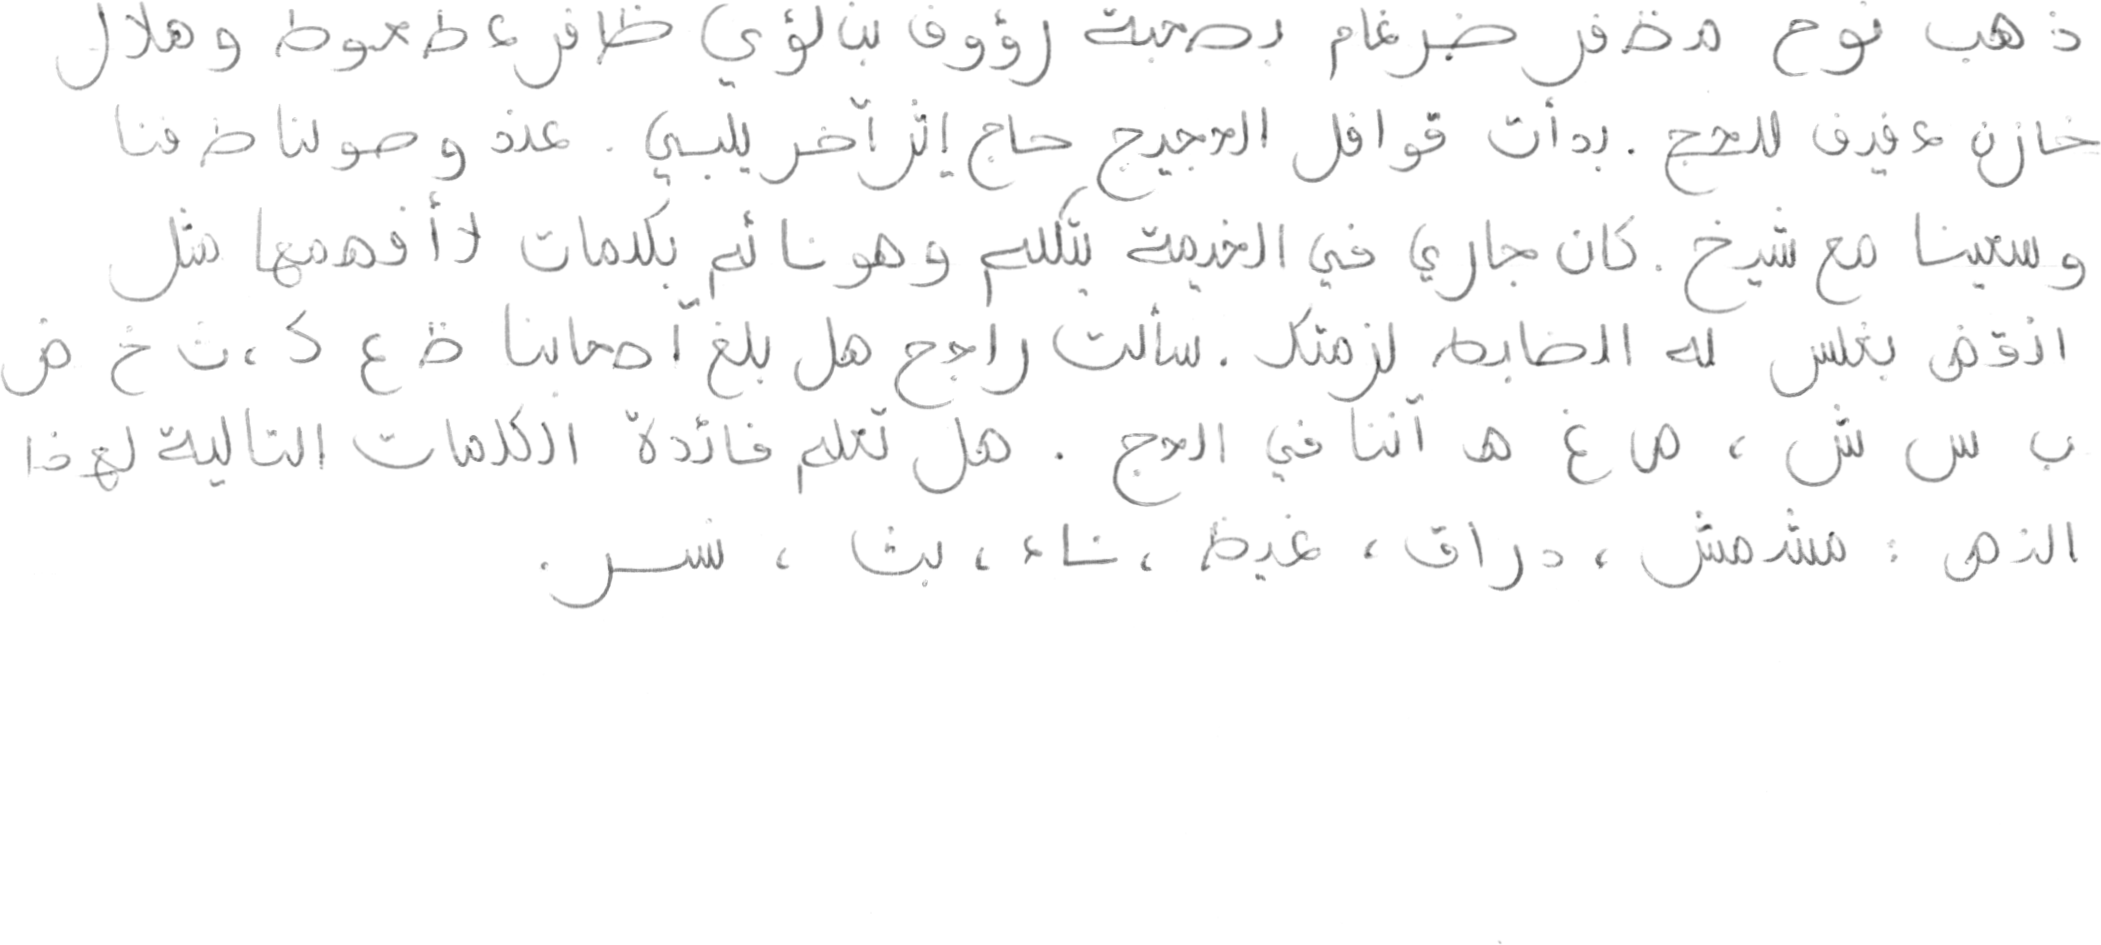 ذهب نوح مظفر ضرغام بصحبة رؤوف بن لؤي ظافر عطعوط وهلال
خازن عفيف للحج . بدأت قوافل الحجيج حاج إثر آخر يلبي . عند وصولنا طفنا
وسعينا مع شيخ . كان جاري في الخيمة يتكلم وهو نائم بكلمات لا أفهمها مثل
انقض بغلس له الضابط لزمتك . سألت راجح هل بلغ أصحابنا ظ ع ك ، ث خ ض
ب س ش ، ص غ هـ أننا في الحج . هل تعلم فائدة الكلمات التالية لهذا
النص : مشمش ، دراق ، غيظ ، ناء ، بث ، نسر .